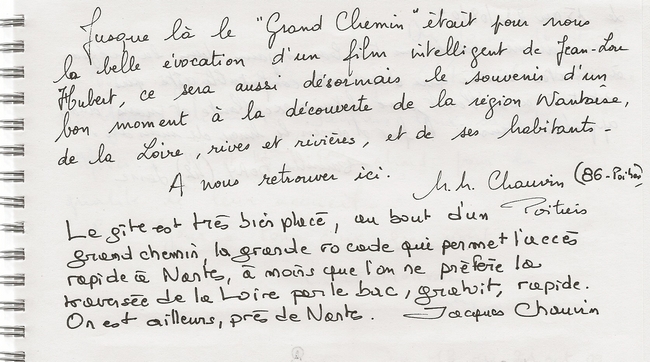 Jusque là le "Grand Chemin" était pour nous
la belle évocation d'un film intelligent de Jean-Lou
Hubert, ce sera aussi désormais le souvenir d'un
bon moment à la découverte de la région Nantaise,
de la Loire, rives et rivières, et de ses habitants -
A nous retrouver ici.
M. M. Chauvin (86-Poitiers)
Poitiers
Le gîte est très bien placé, au bout d'un
grand chemin, la grande rocade qui permet l'accès
rapide à Nantes, à moins que l'on ne préfère la
traversée de la Loire par le bac, gratuit, rapide.
On est ailleurs, près de Nantes. Jacques Chauvin